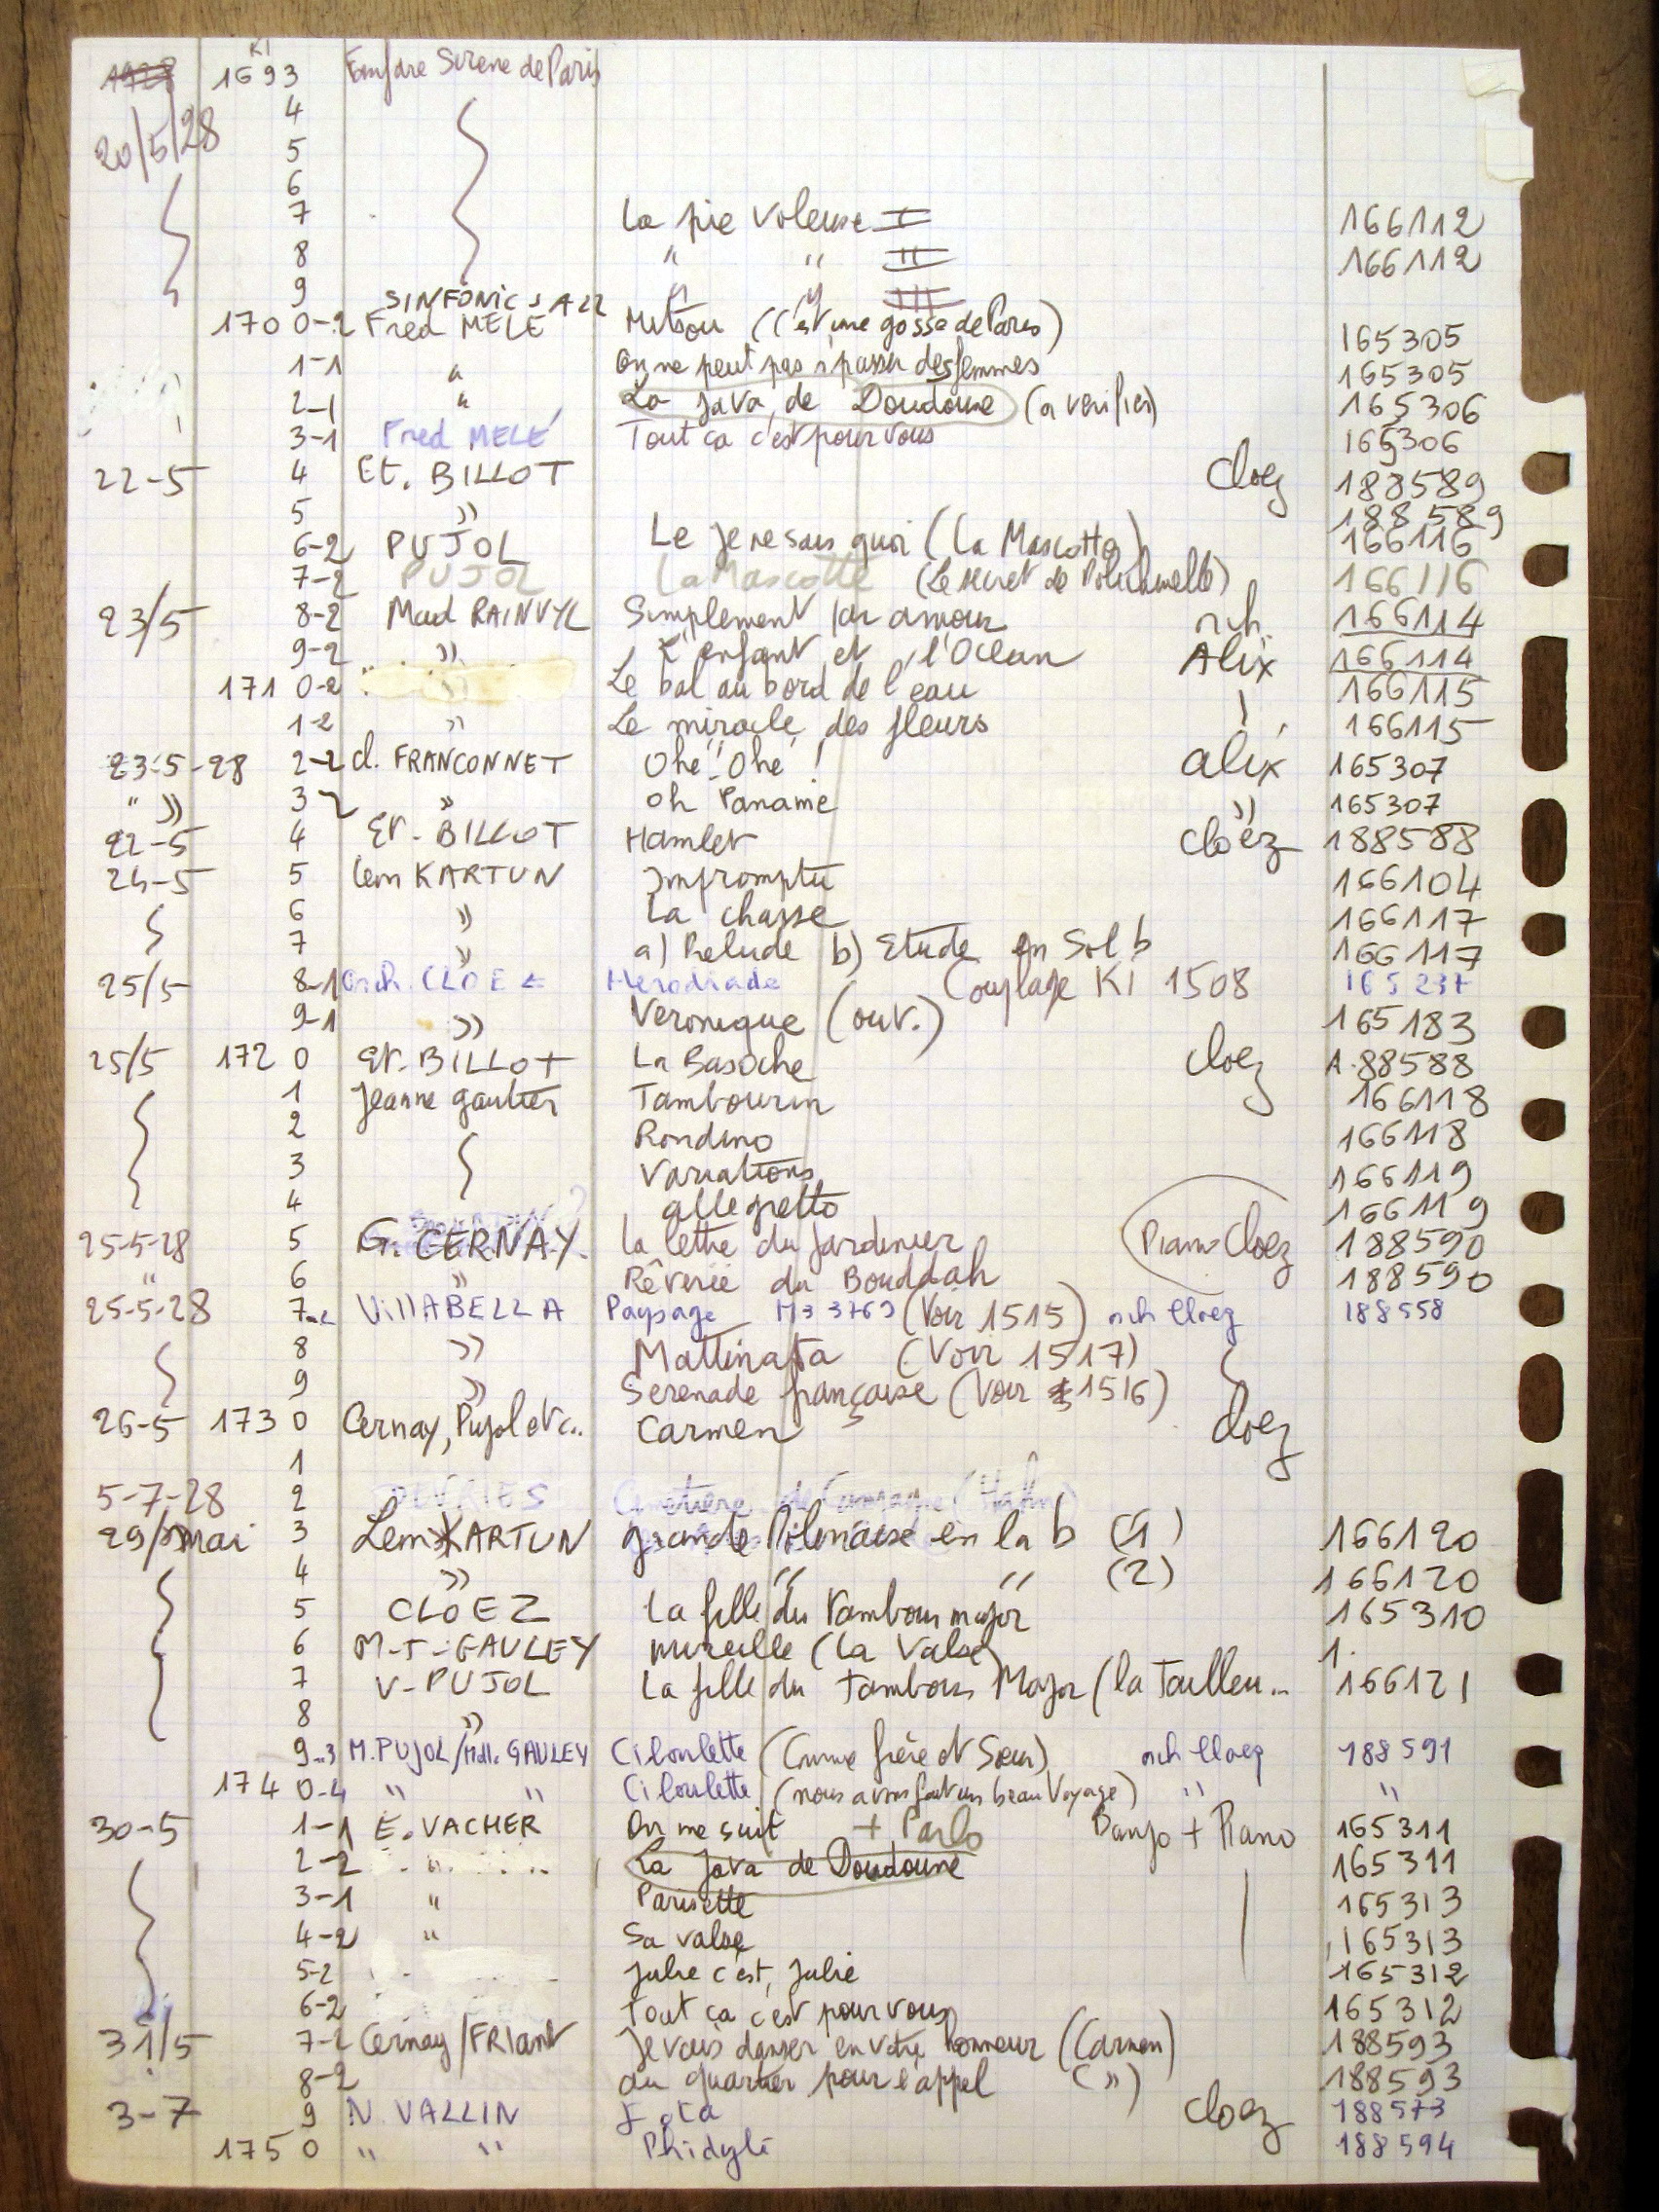 KI
1693 Fanfare Sirene de Paris
20/5/28 4
5
6
7 La pie Voleuse I 166112
8 " " II 166112
9 " " III
SINFONIC JAZZ
170 0-2 Fred MELE Mitsou (C'est une gosse de Paris) 165305
1-1 " On ne peut pas s'passer des femmes 165305
2-1 " La Java de Doudoune (a verifier) 165306
3-1 Fred MELÉ Tout ca c'est pour vous 165306
22-5 4 Et. BILLOT Cloez 188589
5 » 188589
6-2 PUJOL Le je ne sais quoi (La Mascotte) 166116
7-2 PUJOL La Mascotte (Le secret de Polichinelle) 166116
23/5 8-2 Mad RAINVYL Simplement par amour orch. 166114
9-2 » L'enfant et l'Ocean Alix 166114
171 0-2 » Le bal au bord de l'eau 166115
1-2 » Le miracle des fleurs 166115
23-5-28 2-2 d. FRANCONNET Ohé! Ohé! alix 165307
" » 3 » Oh Paname » 165307
22-5 4 Et. BILLOT Hamlet cloëz 188588
24-5 5 Leon KARTUN Impromptu 166104
6 » La chasse 166117
7 » a) Prelude b) Etude en Sol b 166117
25/5 8-1 Orch. CLOEZ Herodiade Couplage KI 1508 165237
9-1 » Veronique (ouv.) 165183
25/5 172 0 Et. BILLOT La Basoche Cloez 188588
1 Jeanne gautier Tambourin 166118
2 Rondino 166118
3 Variations 166119
4 allegretto 166119
25-5-28 5 G. CERNAY La lettre du Jardinier Piano Cloez 188590
" 6 » Rêverie du Bouddah 188590
25-5-28 7-2 VillABELLA Paysage M3 3763 (Voir 1515) orch Cloez 188558
8 » Mattinata (Voir 1517)
9 » Serenade française (Voir 1516)
26-5 173 0 Cernay, Pujol etc.. Carmen Cloez
1
5-7-28 2 DEVRIES Cimetière de Campagne (Hahn)
29/mai 3 Leon KARTUN grande Polonaise en la b (1) 166120
4 » " " (2) 166120
5 CLOEZ La fille du tambour major 165310
6 M-T-GAULEY mireille (La Valse) 1.
7 V-PUJOL La fille du tambour Major (la Tailleu... 166121
8 »
9-3 M. PUJOL/Mdlle GAULEY Ciboulette (Comme frère et Soeur) orch Cloez 188591
174 0-4 " " Ciboulette (nous avons fait un beau Voyage) " "
30-5 1-1 E. VACHER On me suit + Parlo Banjo + Piano 165311
2-2 " La Java de Doudoune 165311
3-1 " Parisette 165313
4-2 " Sa valse 165313
5-2 Julie c'est, Julie 165312
6-2 Tout ça c'est pour vous 165312
31/5 7-2 Cernay/FRIANT Je vais danser en votre honneur (Carmen) 188593
8-2 au quartier pour l'appel (») 188593
3-7 9 N. VALLIN Jota Cloez 188573
175 0 " " Phidylé 188594